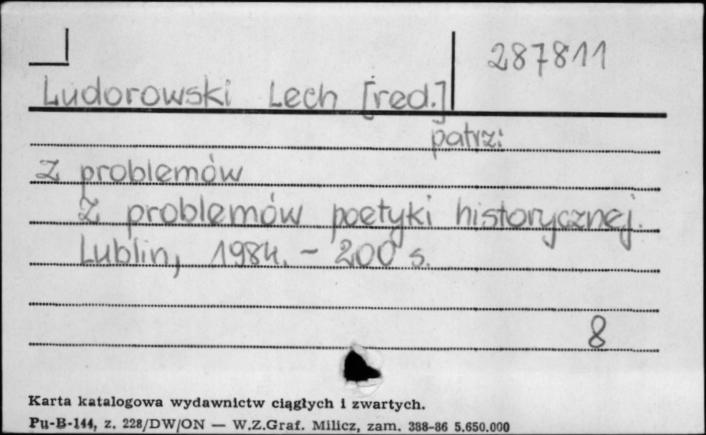 287811
Ludorowski Lech [red.]
patrz:
Z problemów
Z problemów poetyki historycznej.
Lublin, 1984. - 200 s.
8
Karta katalogowa wydawnictw ciągłych i zwartych.
Pu-B-144, z. 228/DW/ON — W.Z.Graf. Milicz, zam. 388-86 5.650.000